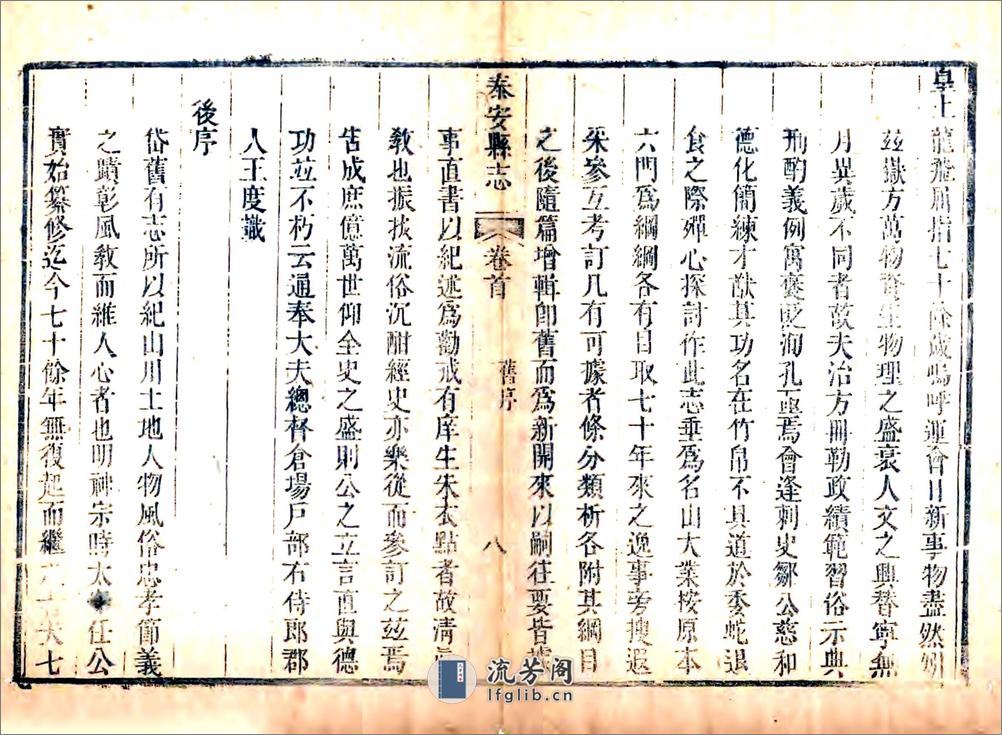 皇上龍飛屈指七十餘歲嗚呼運會日新事物盡然矧
茲嶽方萬物資生物理之盛衰人文之興替寧無
月異歲不同者故夫治方冊勒政績範習俗示典
刑酌義例寓褒貶洵孔亟焉會逢刺史鄒公慈和
德化簡練才猷其功名在竹帛不具道於委蛇退
食之際殫心探討作此志垂爲名山大業按原本
六門爲綱綱各有目取七十年來之逸事旁搜遐
采參互考訂凡有可據者條分類析各附其綱目
之後隨篇增輯卽舊而爲新開來以嗣往要皆據
事直書以紀述爲勸戒有庠生朱衣點者故淸
教也振拔流俗沉酣經史亦樂從而參訂之茲焉
告成庶億萬世仰全史之盛則公之立言直與德
功並不朽云通奉大夫總督倉場戸部右侍郎郡
人王度識
後序
岱舊有志所以紀山川土地人物風俗忠孝節義
之蹟彰風教而維人心者也明神宗時太任公
實始纂修迄今七十餘年無復起而繼夫七
泰安縣志
卷首
舊序
八
流芳阁
lfglib.cn